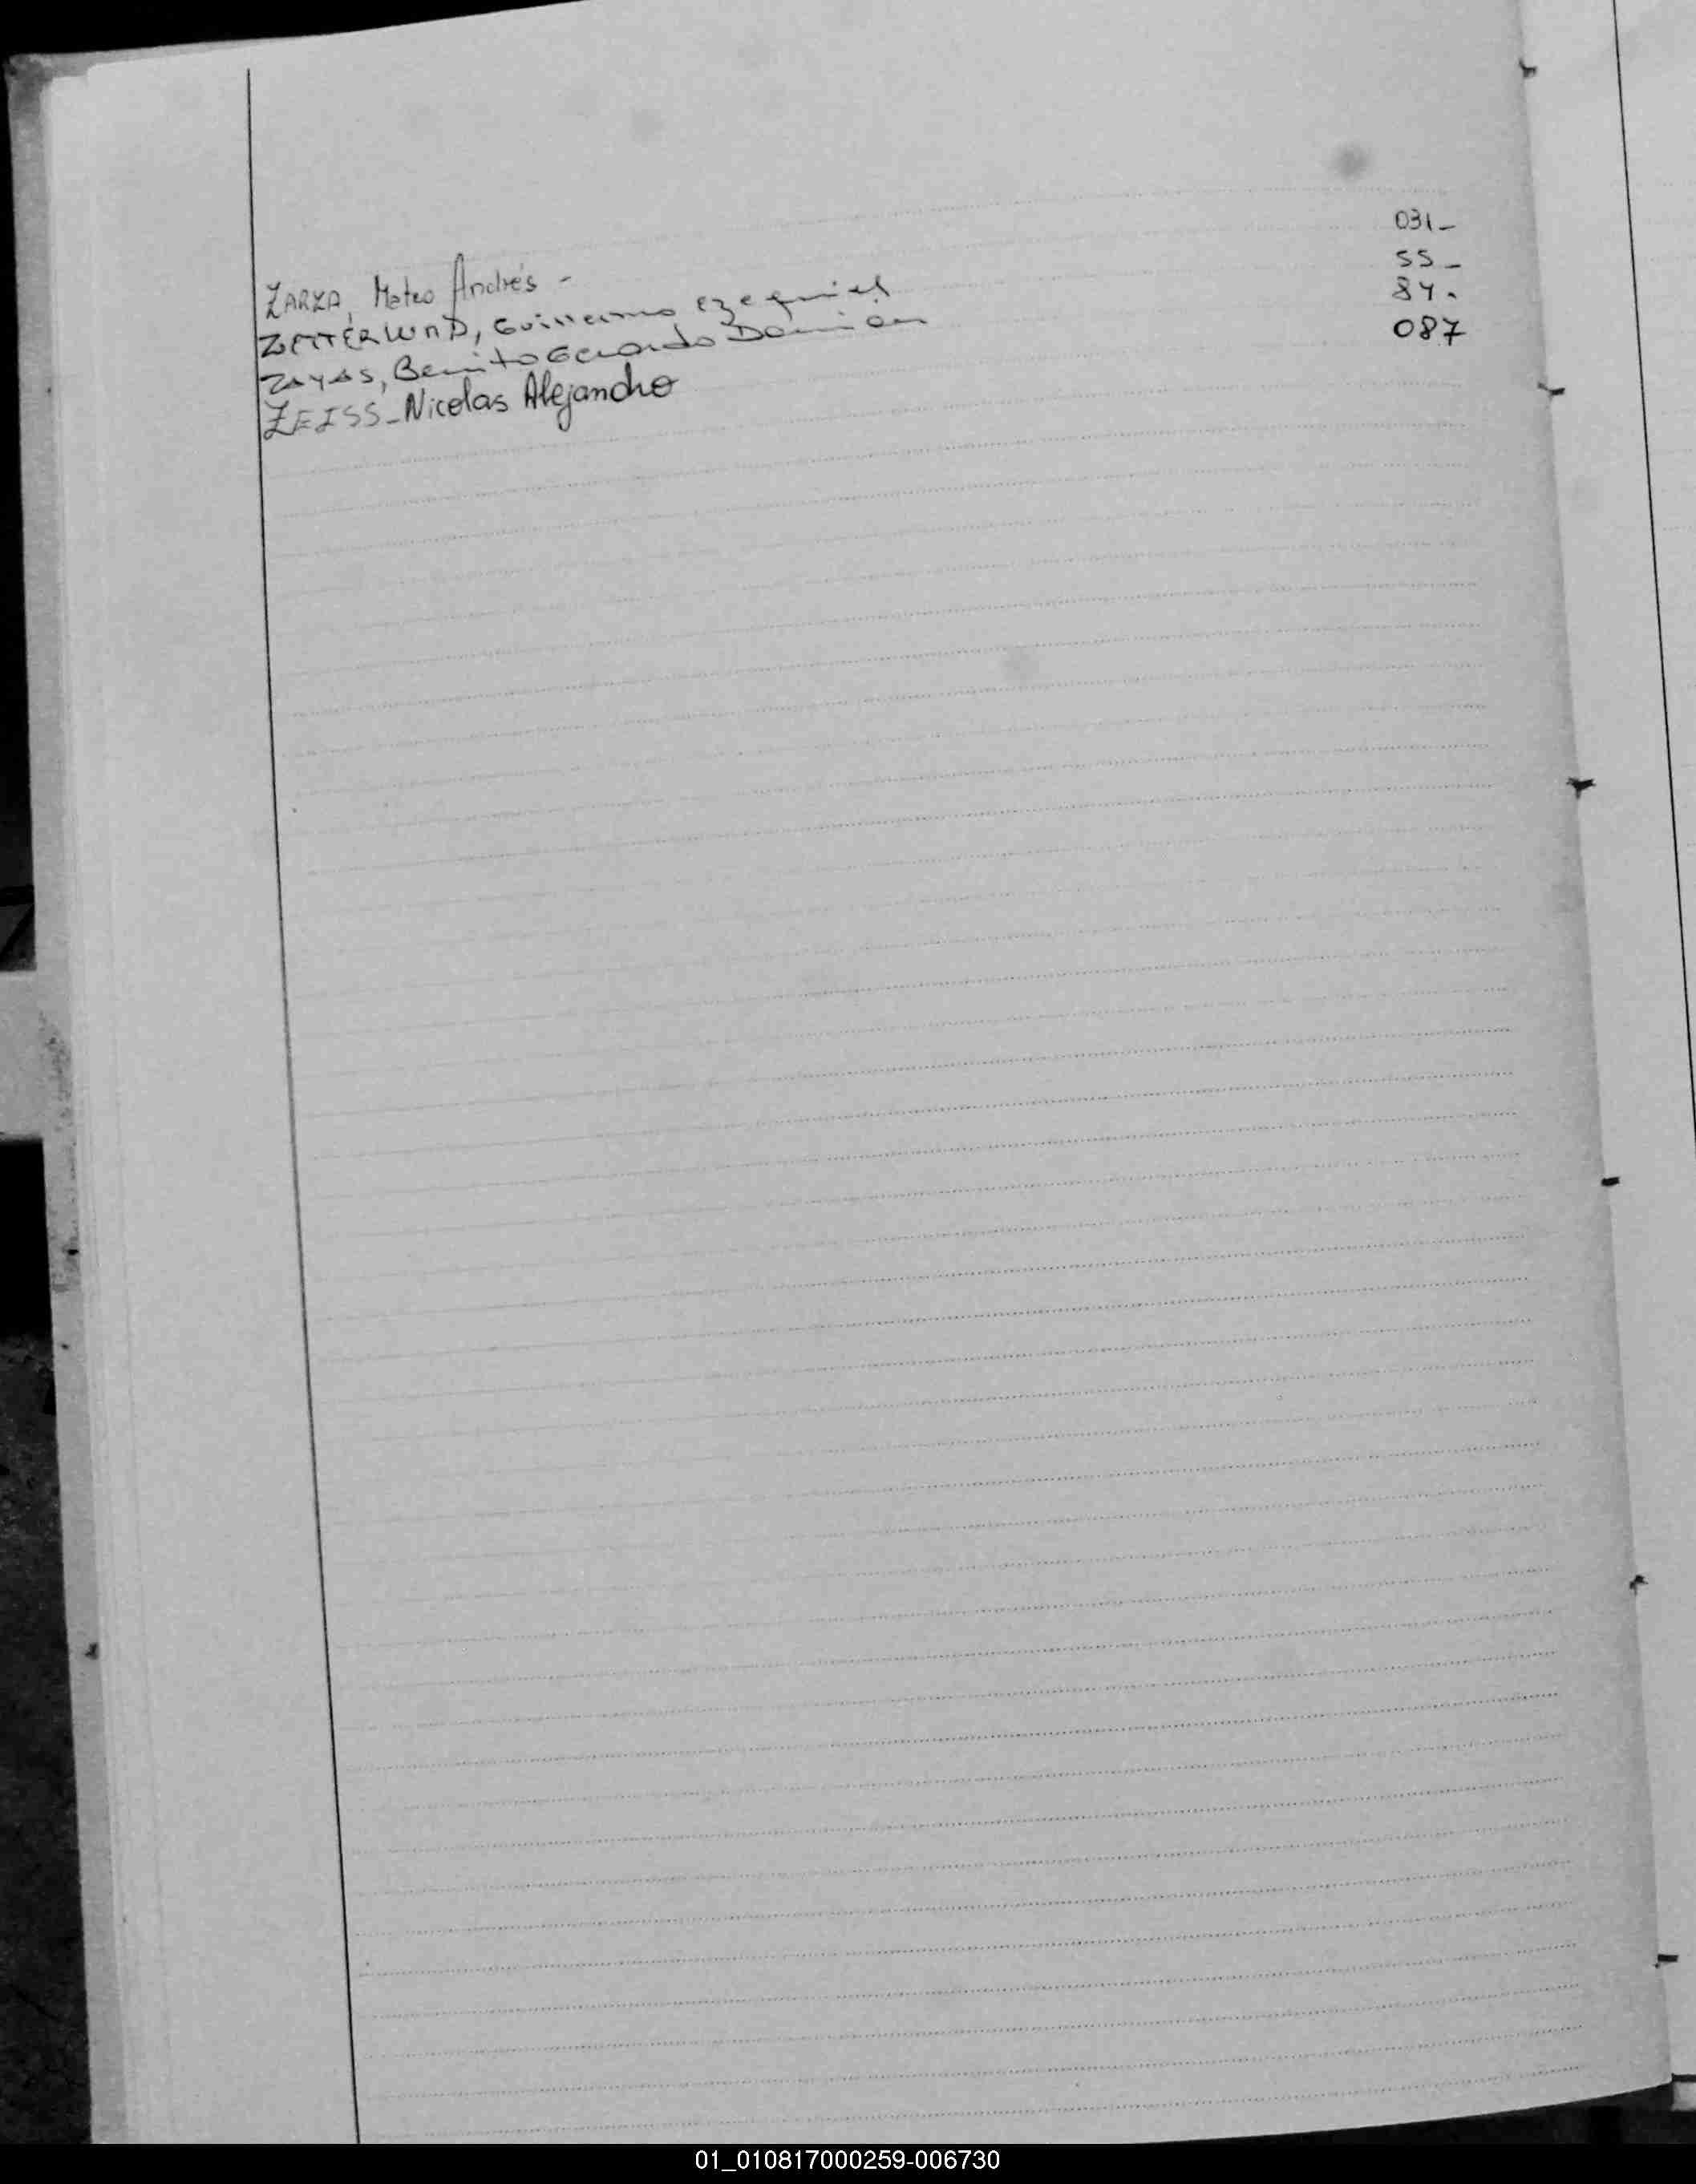 ZARZA, Mateo Andrés - 031-
ZETTERLUND, Guillermo Ezequiel 55-
ZAYAS, Benito Gerardo Damián 84.
ZEISS-Nicolas Alejandro 087
01_010817000259-006730